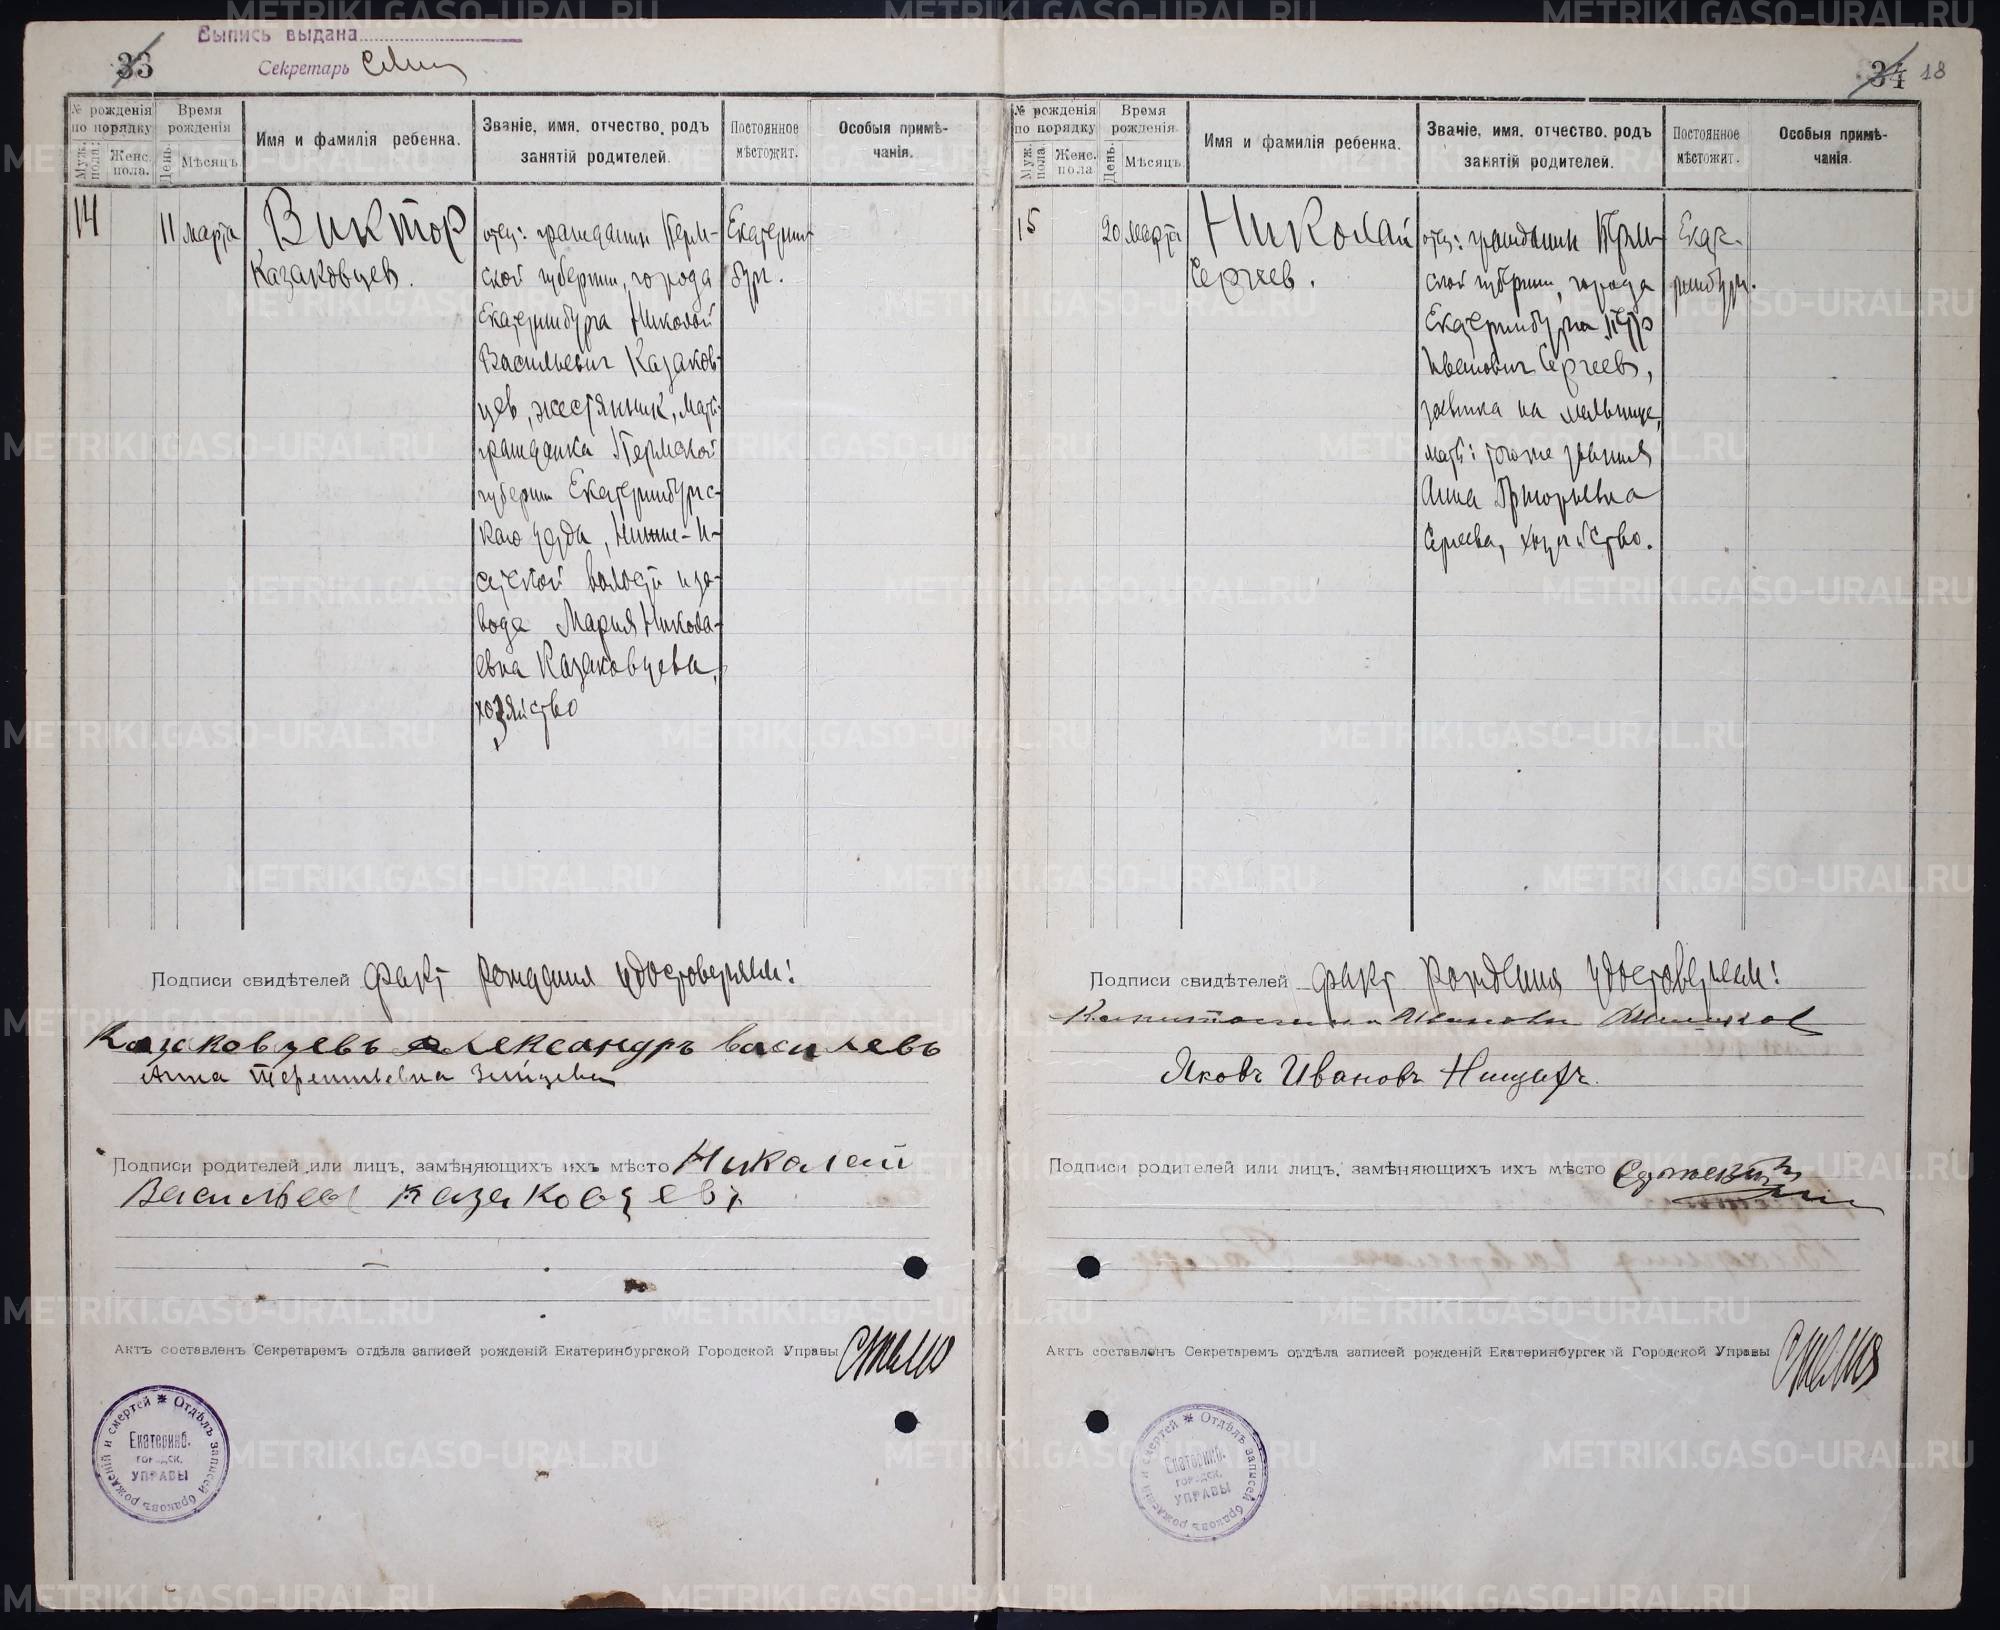 Выпись выдана
Секретарь
33
№ рожденія по порядку
Муж. пола.
Женс. пола.
Время рожденія
День.
Мѣсяцъ
Имя и фамилія ребенка.
Званіе, имя, отчество, родъ занятій родителей.
Постоянное мѣстожит.
Особыя примѣчанія.
14
11 марта
Виктор
Казаковцев.
отец: гражданин Перм-
ской губернии, города
Екатеринбурга Николай
Васильевич Казаков-
цев, жестянник, мать:
гражданка Пермской
губернии Екатеринбургс-
кого уезда, Нижне-И-
сетской волости и за-
вода Мария Никола-
евна Казаковцева,
хозяйство
Екатерин-
бург.
Подписи свидѣтелей факт рождения удостоверяем!
Казаковцевъ Александръ Василевъ
Анна Терентьевна
Подписи родителей или лицъ, замѣняющихъ ихъ мѣсто Николай
Васильев Казаковцевъ
Актъ составленъ Секретаремъ отдѣла записей рожденій Екатеринбургской Городской Управы
Отдѣлъ записей браковъ рожденій и смертей
Екатеринб.
городск.
Управы
34 18
№ рожденія по порядку
Муж. пола
Женс. пола
Время рожденія
День.
Мѣсяцъ
Имя и фамилія ребенка.
Званіе, имя, отчество, родъ занятій родителей.
Постоянное мѣстожит.
Особыя примѣчанія.
15
20 марта
Николай
Сергеев.
отец: гражданин Перм-
ской губернии, города
Екатеринбурга Петр
Иванович Сергеев,
на мельнице,
мать: того же звания
Анна Григорьевна
Сергеева, хозяйство.
Екате-
ринбург.
Подписи свидѣтелей факт рождения удостоверяем!
Яковъ Ивановъ
Подписи родителей или лицъ, замѣняющихъ ихъ мѣсто
Актъ составленъ Секретаремъ отдѣла записей рожденій Екатеринбургской Городской Управы
Отдѣлъ записей браковъ рожденій и смертей
Екатеринб.
городск.
Управы
METRIKI.GASO-URAL.RU